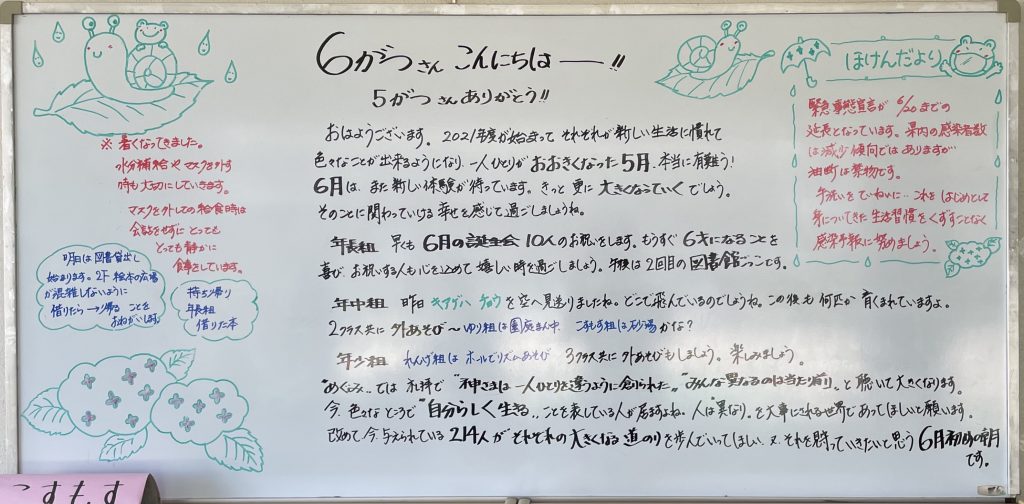 6がつさん こんにちは ー!!
5がつさんありがとう!!
おはようございます。2021年度が始まって それぞれが新しい生活に慣れて
色々なことが出来るようになり、一人ひとりが おおきくなった5月、本当に有難う!
6月は、また新しい体験が待っています。きっと 更に 大きくなっていくでしょう。
そのことに関わっていける 幸せを感じて過ごしましょうね。
年長組 早くも 6月の誕生会 10人のお祝いをします。もうすぐ 6才になることを
喜び、お祝いする人も心を込めて 嬉しい時を過ごしましょう。午後は2回目の図書館ごっこです。
年中組 昨日 キアゲハ チョウを空へ見送りましたね。どこで飛んでいるのでしょうね。この後も 何匹か 育くまれていますよ。
2クラス共に 外あそび〜ゆり組は園庭まん中 こすもす組は砂場かな?
年少組 れんげ組は ホールでリズムあそび 3クラス共に外あそびもしましょう。楽しみましょう。
"めぐみ"では 礼拝で "神さまは一人ひとりを違うように創られた" "みんな異なるのは当たり前"と聴いて大きくなります。
今、色々なところで "自分らしく生きる"ことを表している人が居ますよね。人は"異なり"を大事にされる世界であってほしいと願います。
改めて、今、与えられている 214人が それぞれの 大きくなる 道のりを 歩んでいってほしい、又、それを
6月初日の
です。
※ 暑くなってきました。
水分補給や マスクを外す
時も大切にしていきます。
マスクを外しての給食時は
会話をせずに とっても
とっても静かに
食事をしています。
明日は図書貸出し
始まります。2F 絵本の広場
が混雑しないように
借りたら→帰る ことを
おねがいします。
持ち帰り
年長組
借りた本
ほけんだより
緊急事態宣言が 6/20までの
延長となっています。県内の感染者数
は減少傾向ではありますが
油断は禁物です。
手洗いを ていねいに… これを はじめとして
身についてきた 生活習慣を くずすことなく
感染予報に努めましょう。
こすもす